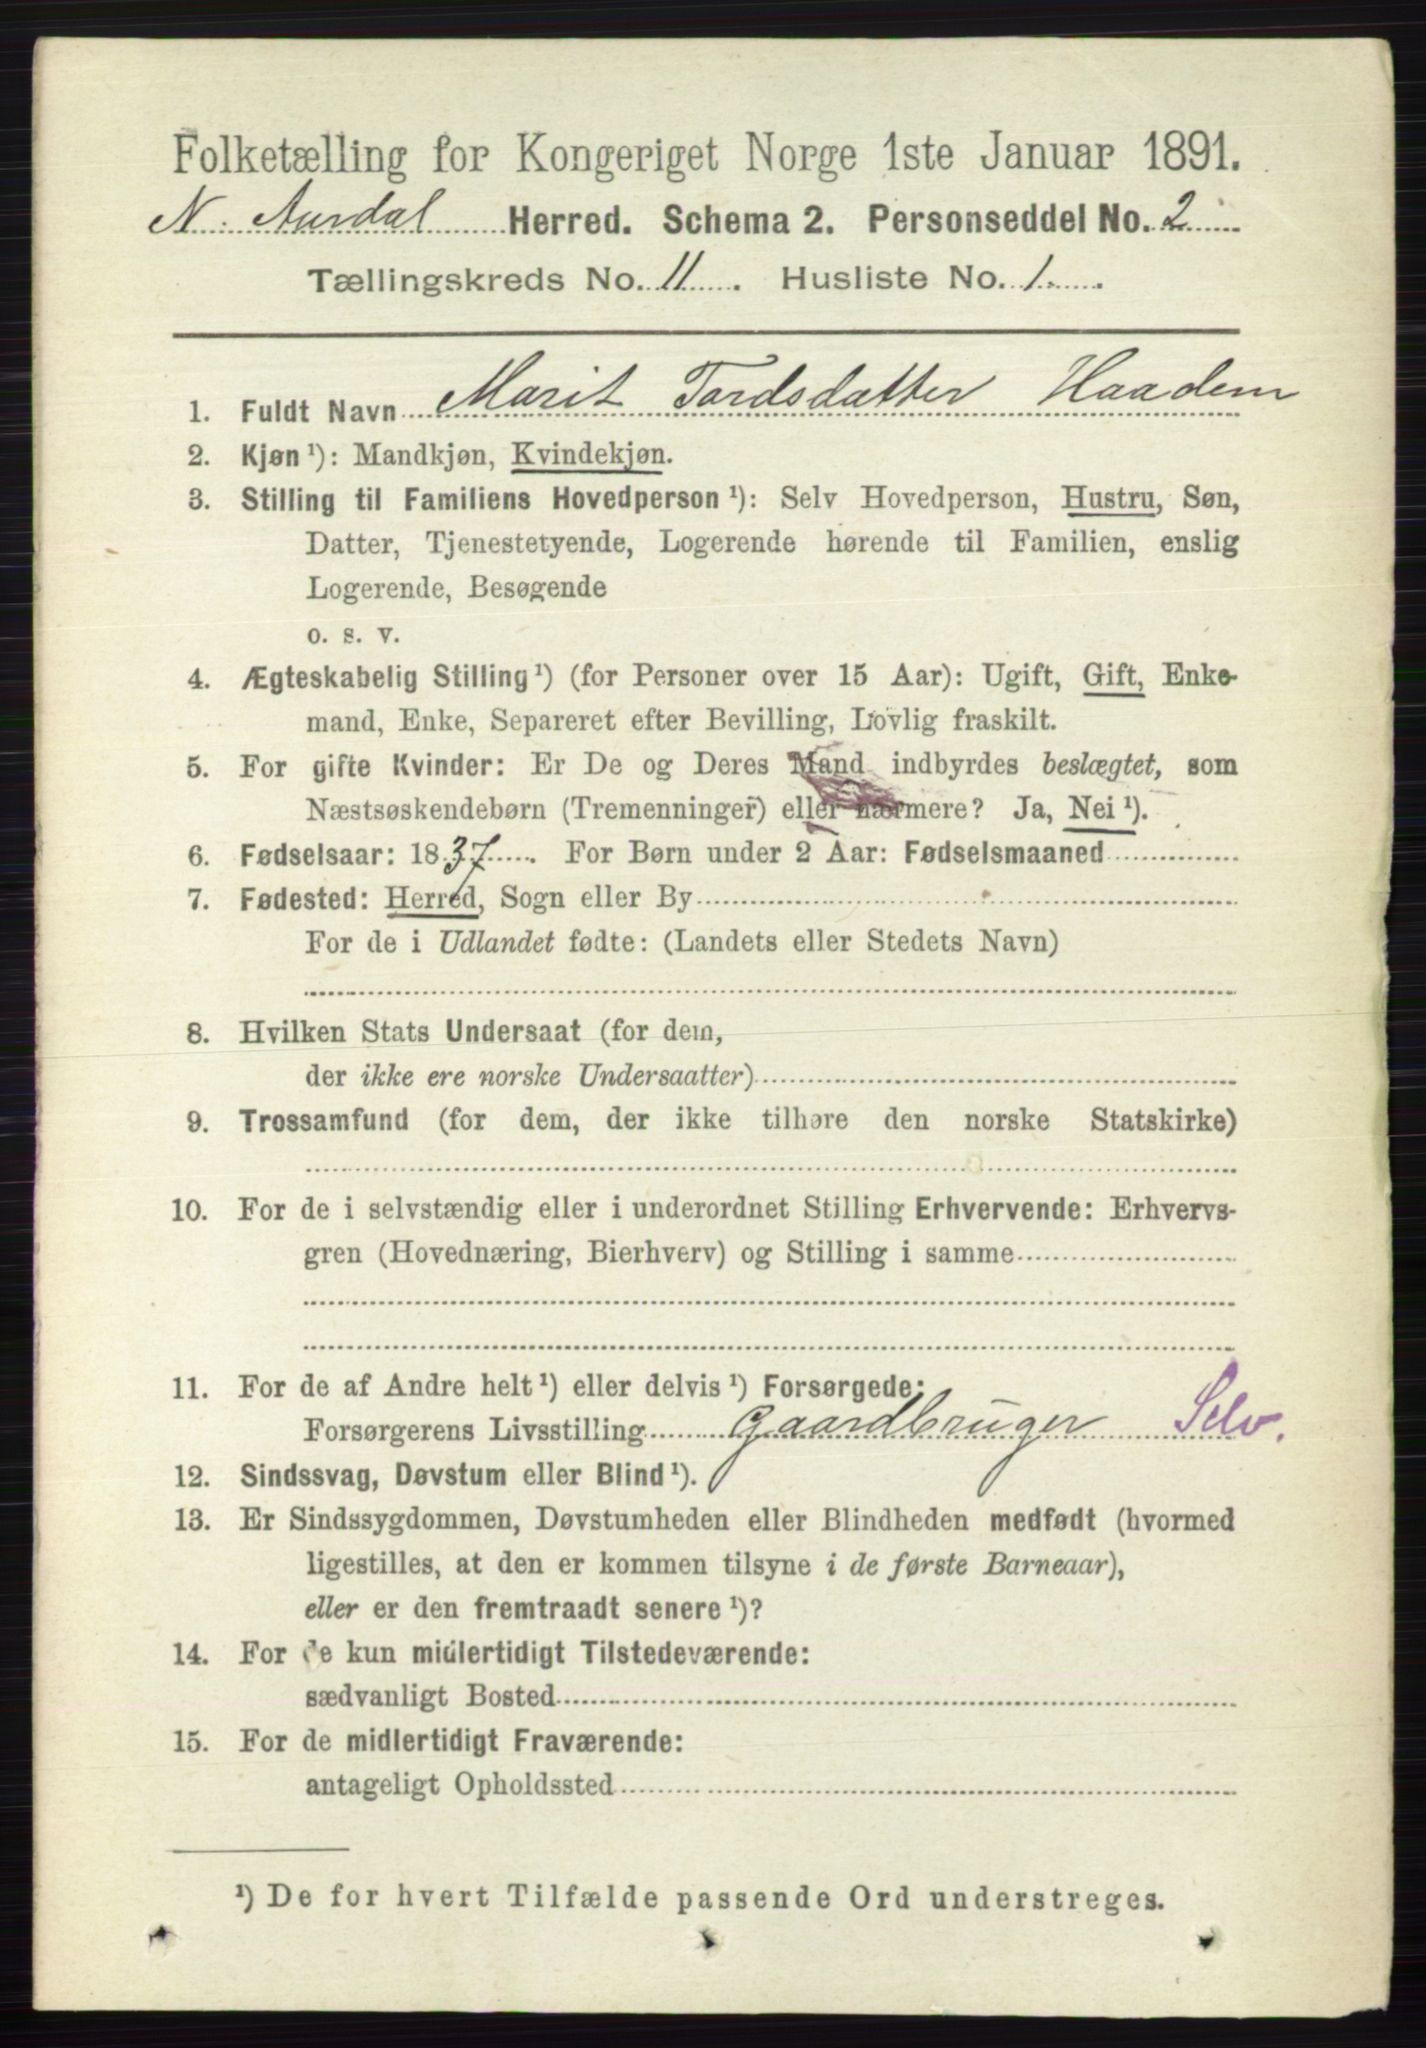 Folketælling for Kongeriget Norge 1ste Januar 1891.
N. Aurdal Herred. Schema 2. Personseddel No. 2
Tællingskreds No. 11. Husliste No. 1.
1. Fuldt Navn Marit Tordsdatter Haadem
2. Kjøn ¹): Mandkjøn, Kvindekjøn.
3. Stilling til Familiens Hovedperson ¹): Selv Hovedperson, Hustru, Søn,
Datter, Tjenestetyende, Logerende hørende til Familien, enslig
Logerende, Besøgende
o. s. v.
4. Ægteskabelig Stilling ¹) (for Personer over 15 Aar): Ugift, Gift, Enke-
mand, Enke, Separeret efter Bevilling, Lovlig fraskilt.
5. For gifte Kvinder: Er De og Deres Mand indbyrdes beslægtet, som
Næstsøskendebørn (Tremenninger) eller nærmere? Ja, Nei ¹).
6. Fødselsaar: 1837. For Børn under 2 Aar: Fødselsmaaned
7. Fødested: Herred, Sogn eller By
For de i Udlandet fødte: (Landets eller Stedets Navn)
8. Hvilken Stats Undersaat (for dem,
der ikke ere norske Undersaatter)
9. Trossamfund (for dem, der ikke tilhøre den norske Statskirke)
10. For de i selvstændig eller i underordnet Stilling Erhvervende: Erhvervs-
gren (Hovednæring, Bierhverv) og Stilling i samme
11. For de af Andre helt ¹) eller delvis ¹) Forsørgede:
Forsørgerens Livsstilling gaardbruger Selv.
12. Sindssvag, Døvstum eller Blind ¹).
13. Er Sindssygdommen, Døvstumheden eller Blindheden medfødt (hvormed
ligestilles, at den er kommen tilsyne i de første Barneaar),
eller er den fremtraadt senere ¹)?
14. For de kun midlertidigt Tilstedeværende:
sædvanligt Bosted
15. For de midlertidigt Fraværende:
antageligt Opholdssted
¹) De for hvert Tilfælde passende Ord understreges.